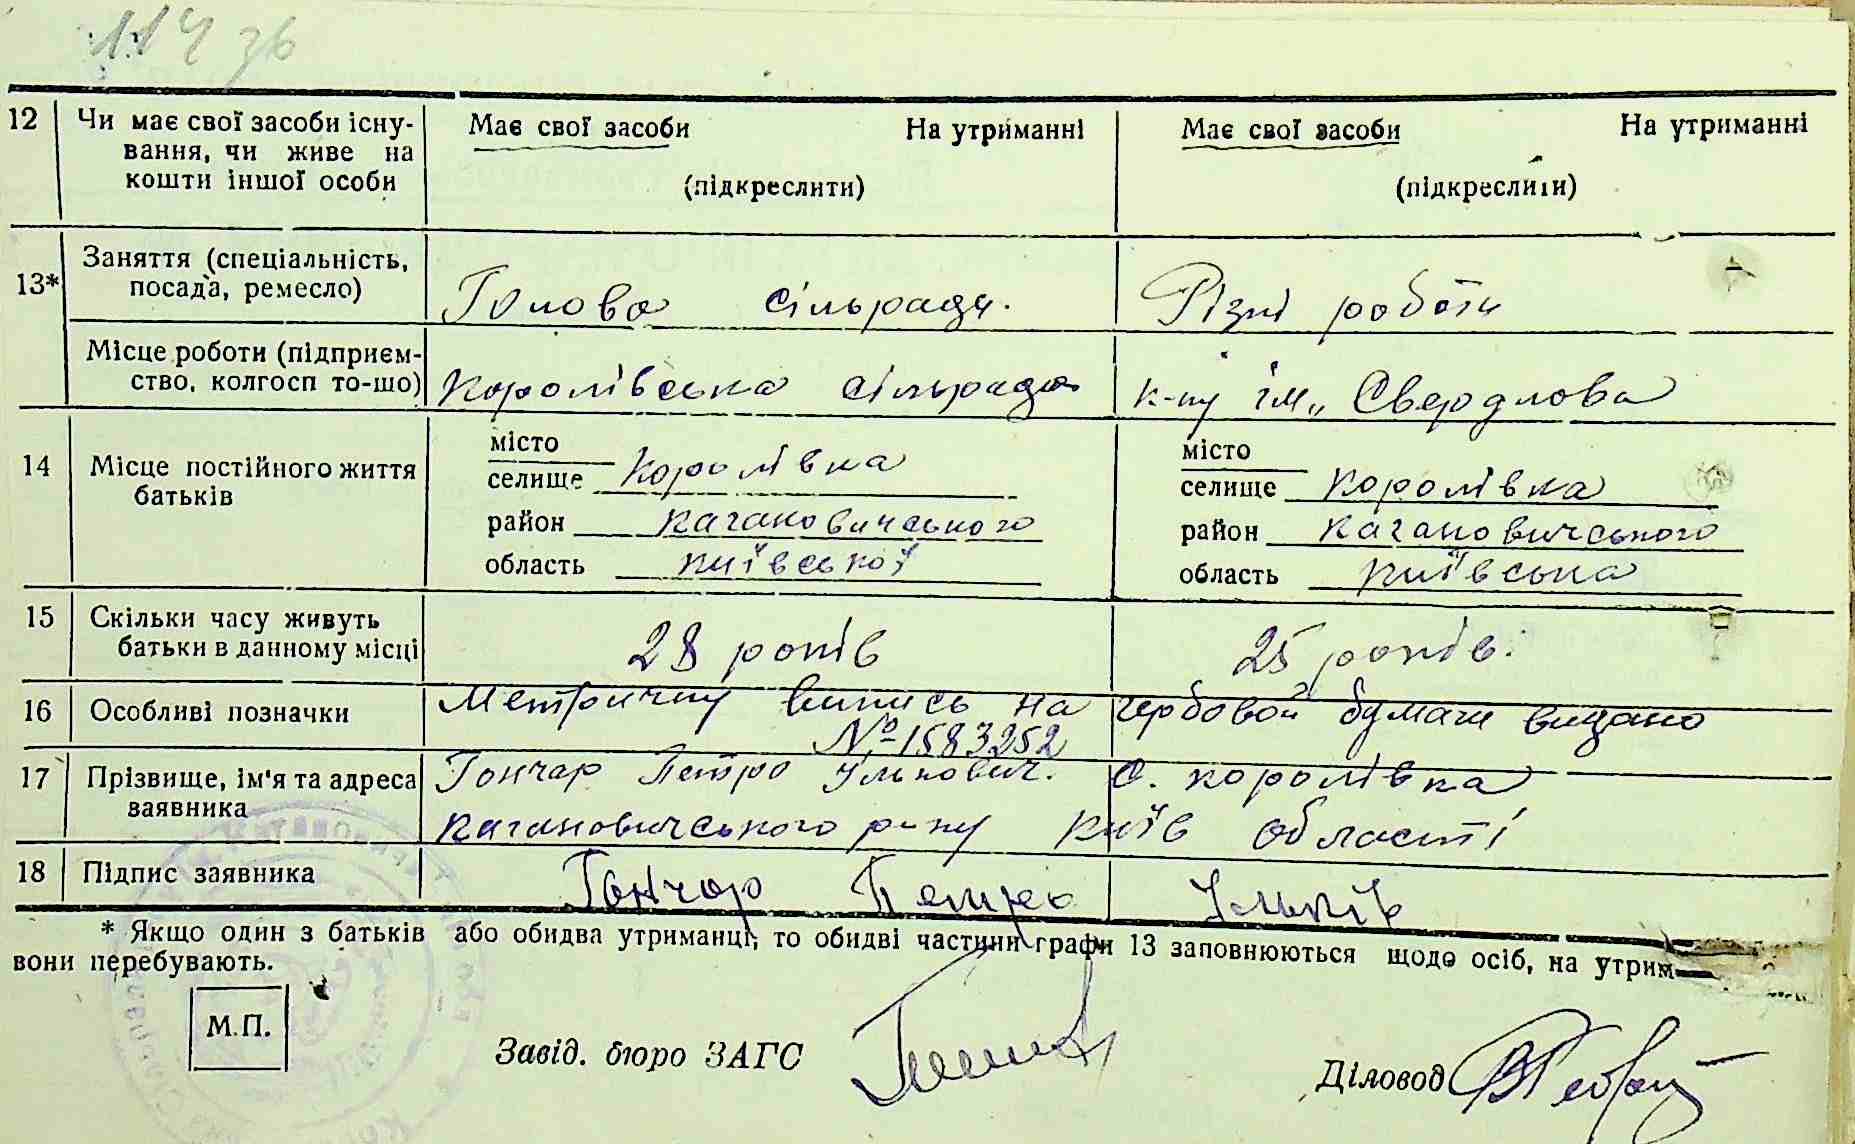 114 зв
12 Чи має свої засоби існу- Має свої засоби На утриманні Має свої засоби На утриманні
вання, чи живе на
кошти іншої особи (підкреслити) (підкреслити)
13* Заняття (спеціальність,
посада, ремесло) Голова сільради. Різні роботи
Місце роботи (підприєм-
ство, колгосп то-що) Королівська сільрада к-пу ім„ Свердлова
14 Місце постійного життя
батьків
місто місто
селище Королівка селище Королівка
район Кагановичського район Кагановичського
область Київської область Київська
15 Скільки часу живуть
батьки в данному місці 28 років 25 років.
16 Особливі позначки Метричну випись на гербовой бумаги видано
№ 1583252
17 Прізвище, ім'я та адреса Гончар Петро Ількович. С. Королівка
заявника Кагановичського р-ну Київ області
18 Підпис заявника Гончар Петро Ільків
* Якщо один з батьків або обидва утриманці, то обидві частини графи 13 заповнюються щодо осіб, на утрим
вони перебувають.
М.П.
Завід. бюро ЗАГС
Діловод